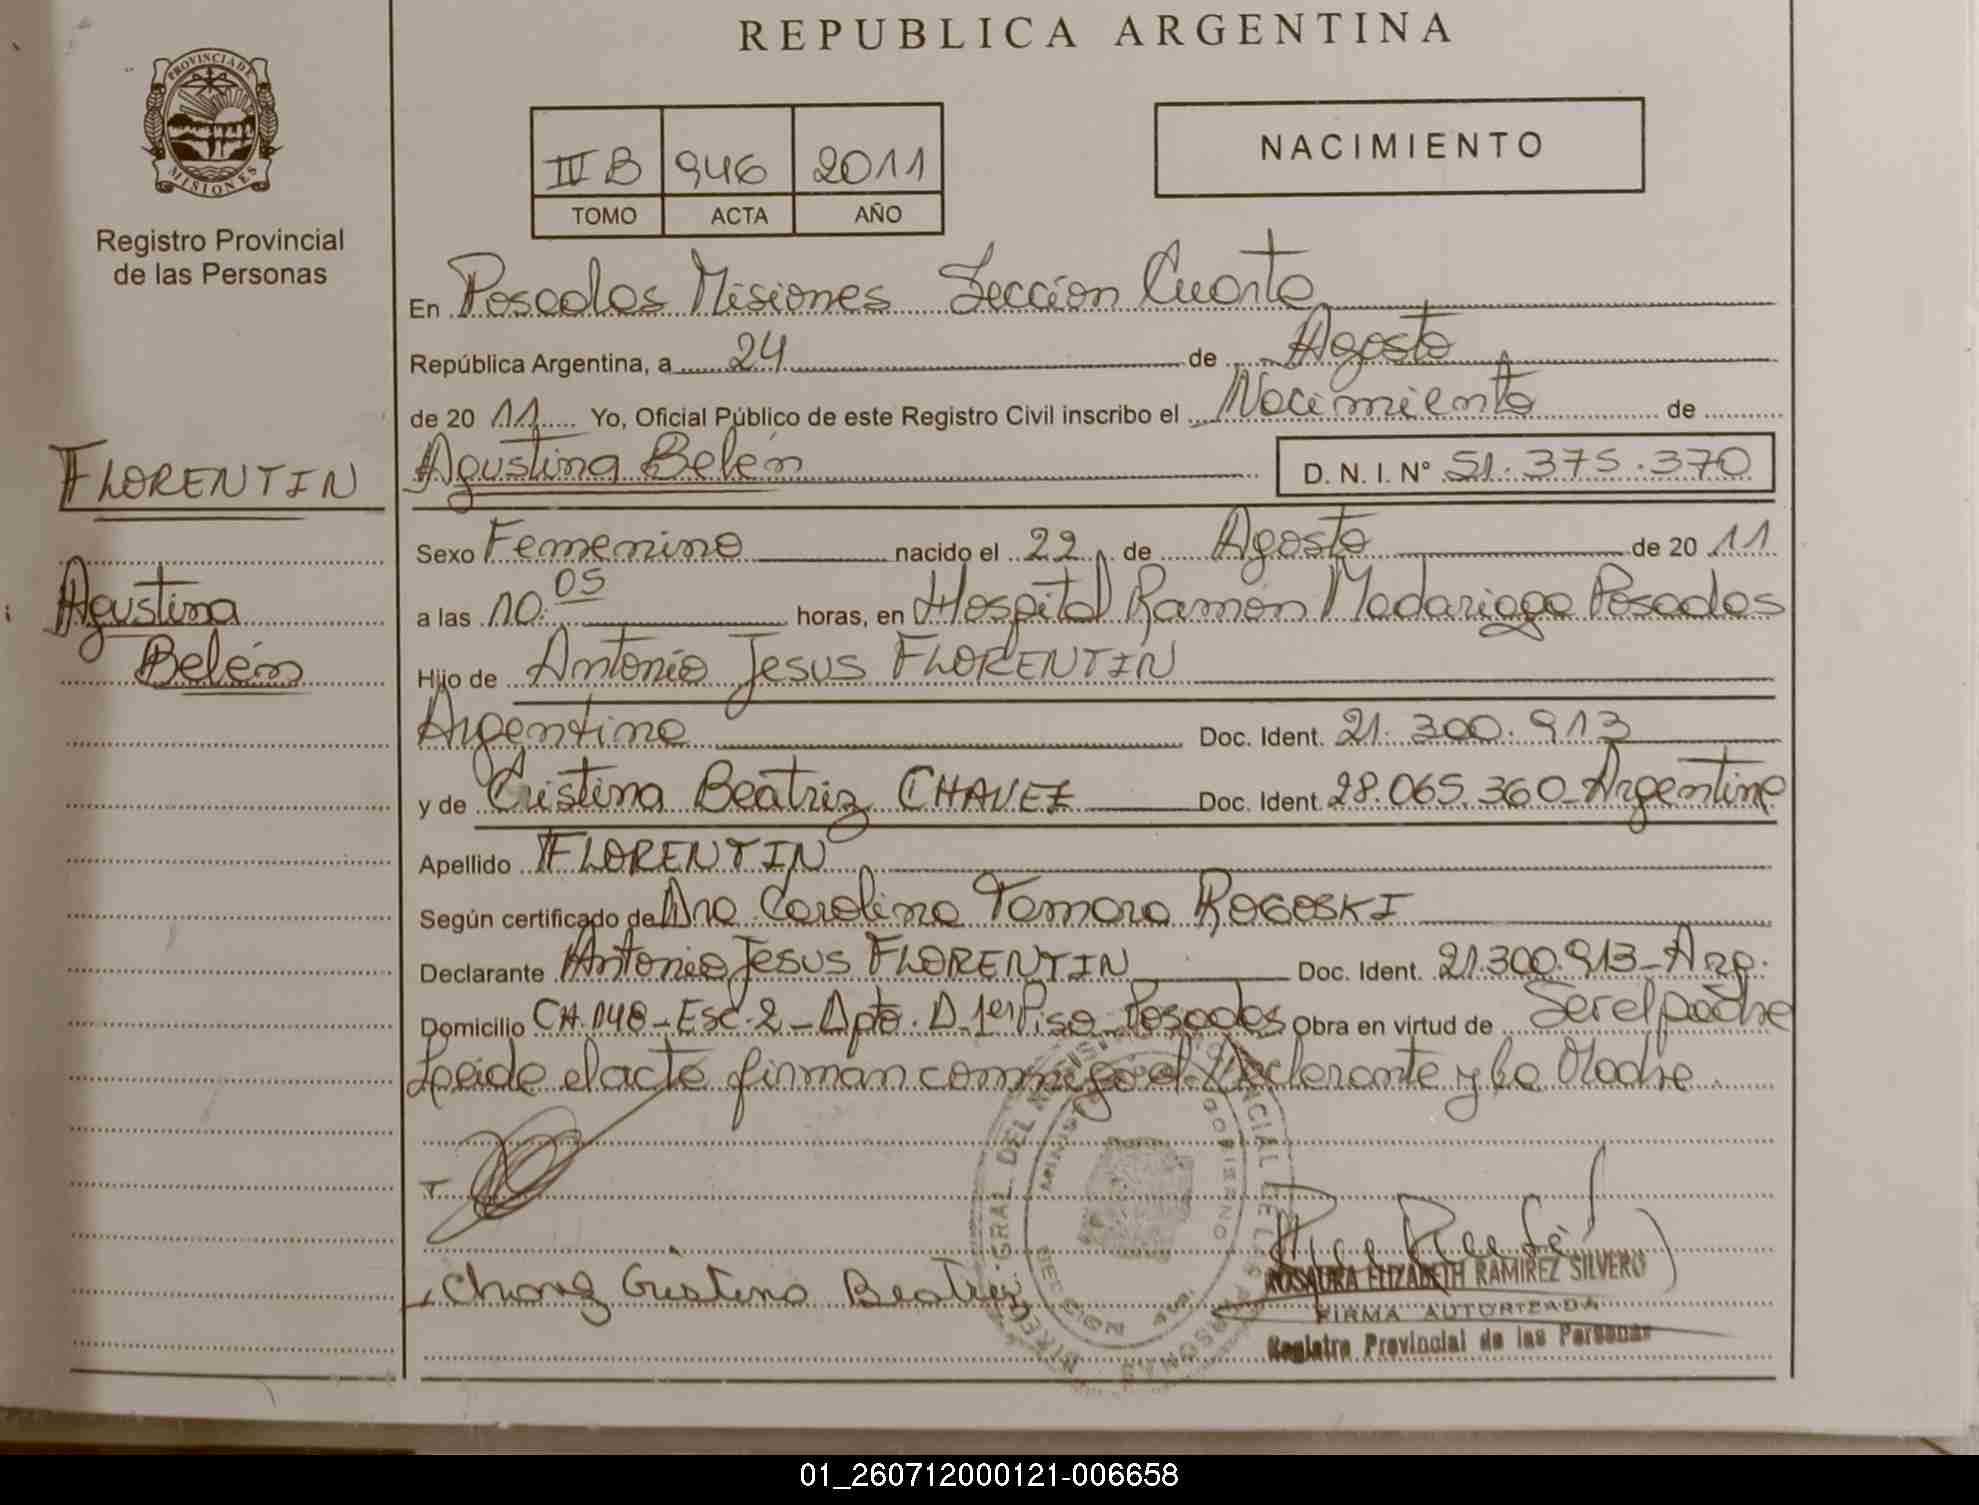 REPUBLICA ARGENTINA
PROVINCIA DE MISIONES
Registro Provincial
de las Personas
III B 946 2011
TOMO ACTA AÑO
NACIMIENTO
En Posadas Misiones Sección Cuarta
República Argentina, a 24 de Agosto
de 20 11 Yo, Oficial Público de este Registro Civil inscribo el Nacimiento de
FLORENTIN
Agustina Belén D. N. I. N° 51.375.370
Sexo Femenino nacido el 22 de Agosto de 20 11
Agustina
Belén
a las 10:05 horas, en Hospital Ramón Madariaga Posadas
Hijo de Antonio Jesus FLORENTIN
Argentino Doc. Ident. 21.300.913
y de Cristina Beatriz CHAVEZ Doc. Ident. 28.065.360 Argentina
Apellido FLORENTIN
Según certificado de Dra Carolina Tamara ROGOSKI
Declarante Antonio Jesus FLORENTIN Doc. Ident. 21.300.913 - Arg.
Domicilio CH.148 - Esc. 2 - Dpto. D 1er Piso Posadas Obra en virtud de Ser el padre
Leída el acta firman conmigo el Declarante y la Madre
Chavez Cristina Beatriz
ROSAURA ELIZABETH RAMIREZ SILVERO
FIRMA AUTORIZADA
Registro Provincial de las Personas
01_260712000121-006658